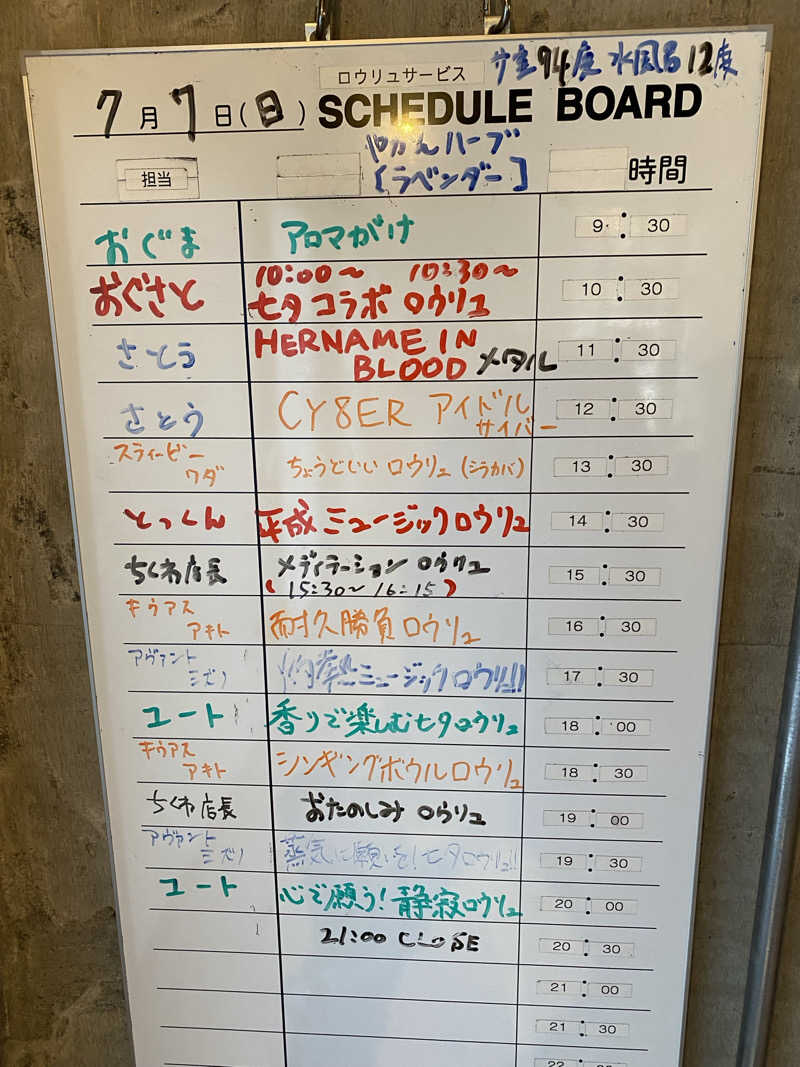 サ室94度 水風呂12度
ロウリュサービス
7月7日(日) SCHEDULE BOARD
やかんハーブ
担当 [ラベンダー] 時間
おぐま アロマがけ 9:30
10:00〜 10:30〜
おぐさと 七夕コラボ ロウリュ 10:30
さとう HERNAME IN BLOOD メタル 11:30
さとう CY8ER アイドル サイバー 12:30
スティービー ワダ ちょうどいい ロウリュ (シラカバ) 13:30
とっくん 平成ミュージックロウリュ 14:30
ちくわ店長 メディテーション ロウリュ 15:30
(15:30〜16:15)
キウアス アキト 耐久勝負ロウリュ 16:30
アヴァント ミズリ 灼熱ミュージックロウリュ!! 17:30
ユート 香りで楽しむ七夕ロウリュ 18:00
キウアス アキト シンギングボウルロウリュ 18:30
ちくわ店長 おたのしみ ロウリュ 19:00
アヴァント ミズリ 蒸気に願いを!七夕ロウリュ!! 19:30
ユート 心で願う!静寂ロウリュ 20:00
21:00 CLOSE 20:30
21:00
21:30
22:00